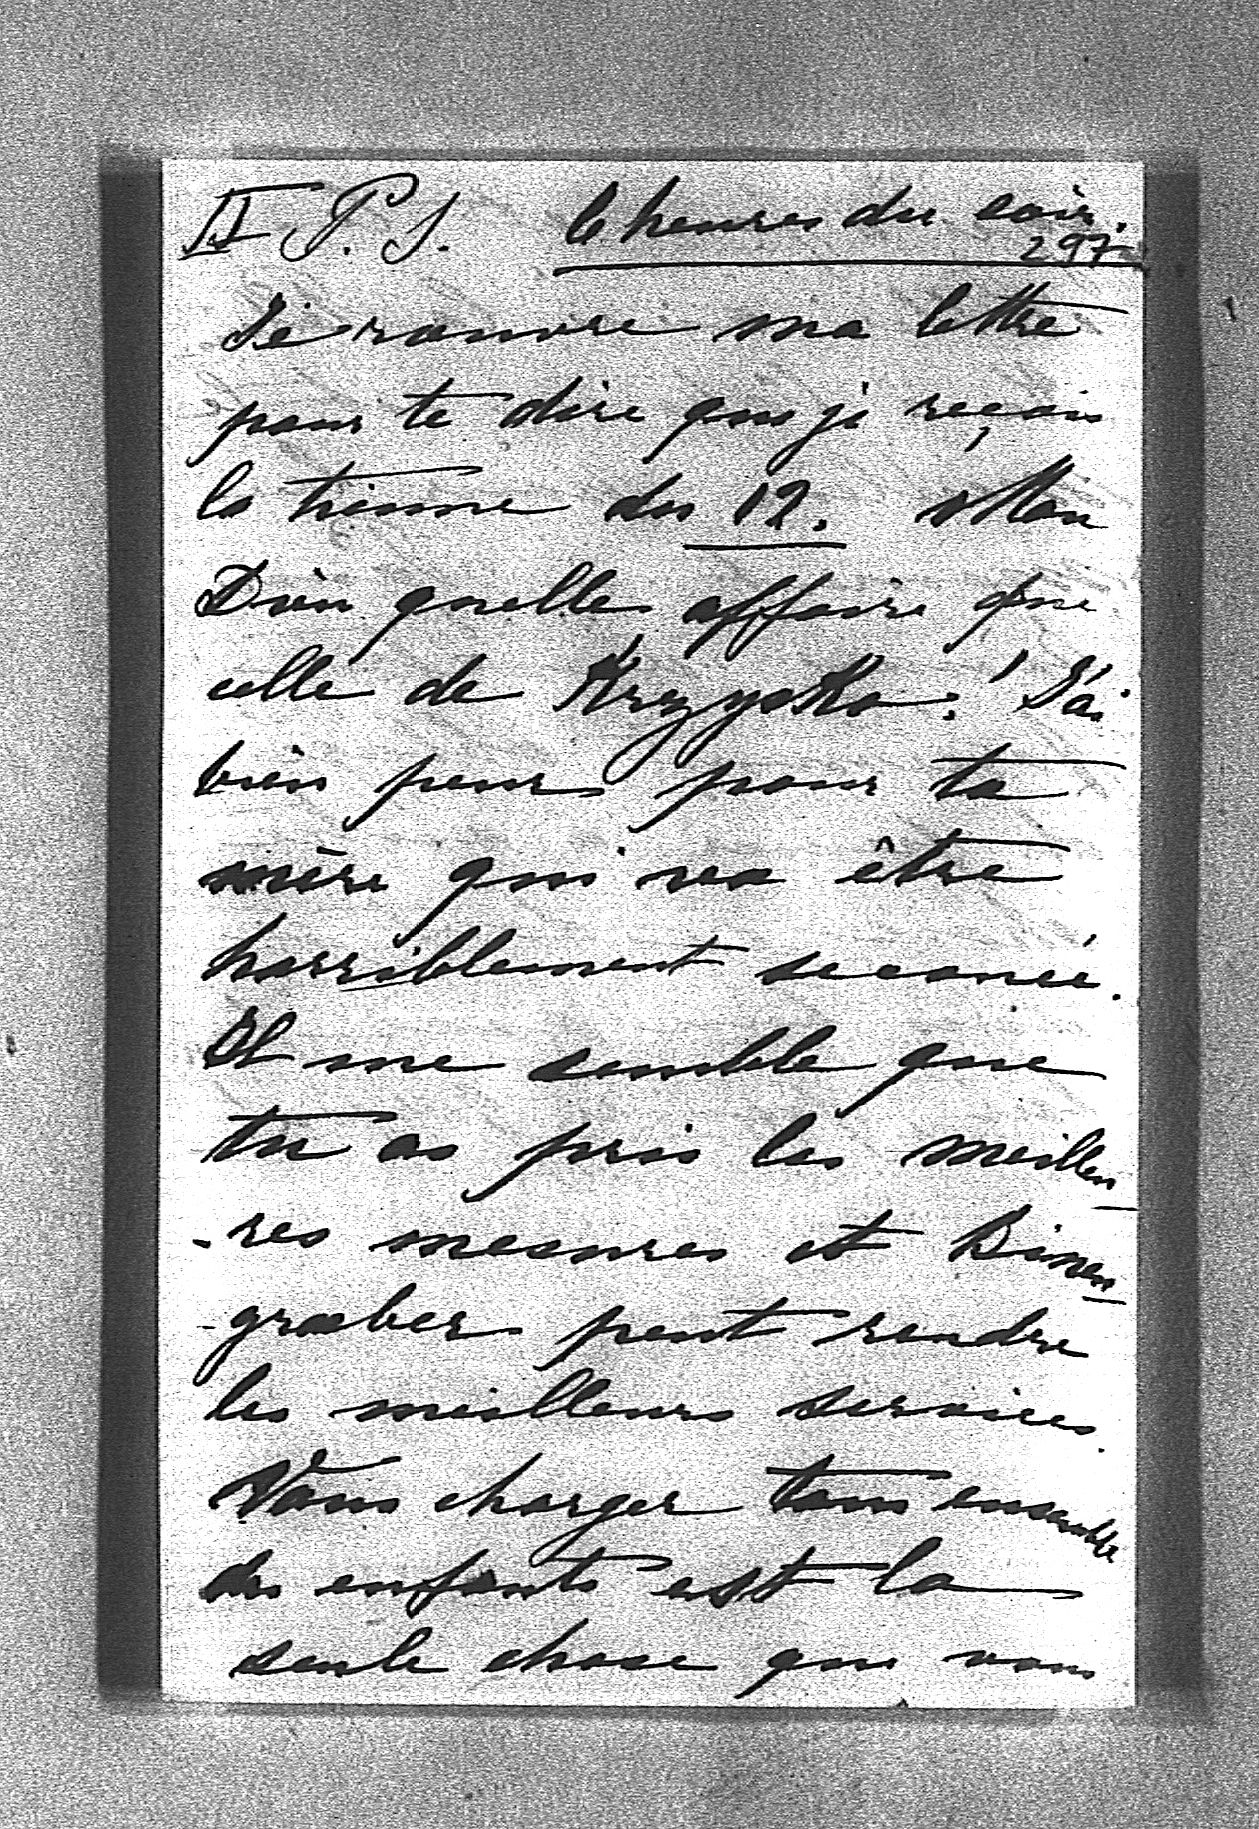 II P.S. 6 heures du soir.
297
Je rouvre ma lettre
pour te dire que je reçois
la tienne du 12. Mon
Dieu quelle affaire que
celle de Krzysko! J'ai
bien peur pour ta
mère qui va être
horriblement secouée.
Il me semble que
tu as pris les meilleu
-res mesures et Binen
-graeber peut rendre
les meilleurs services.
Vous charger tous ensemble
des enfants est la
seule chose que vous